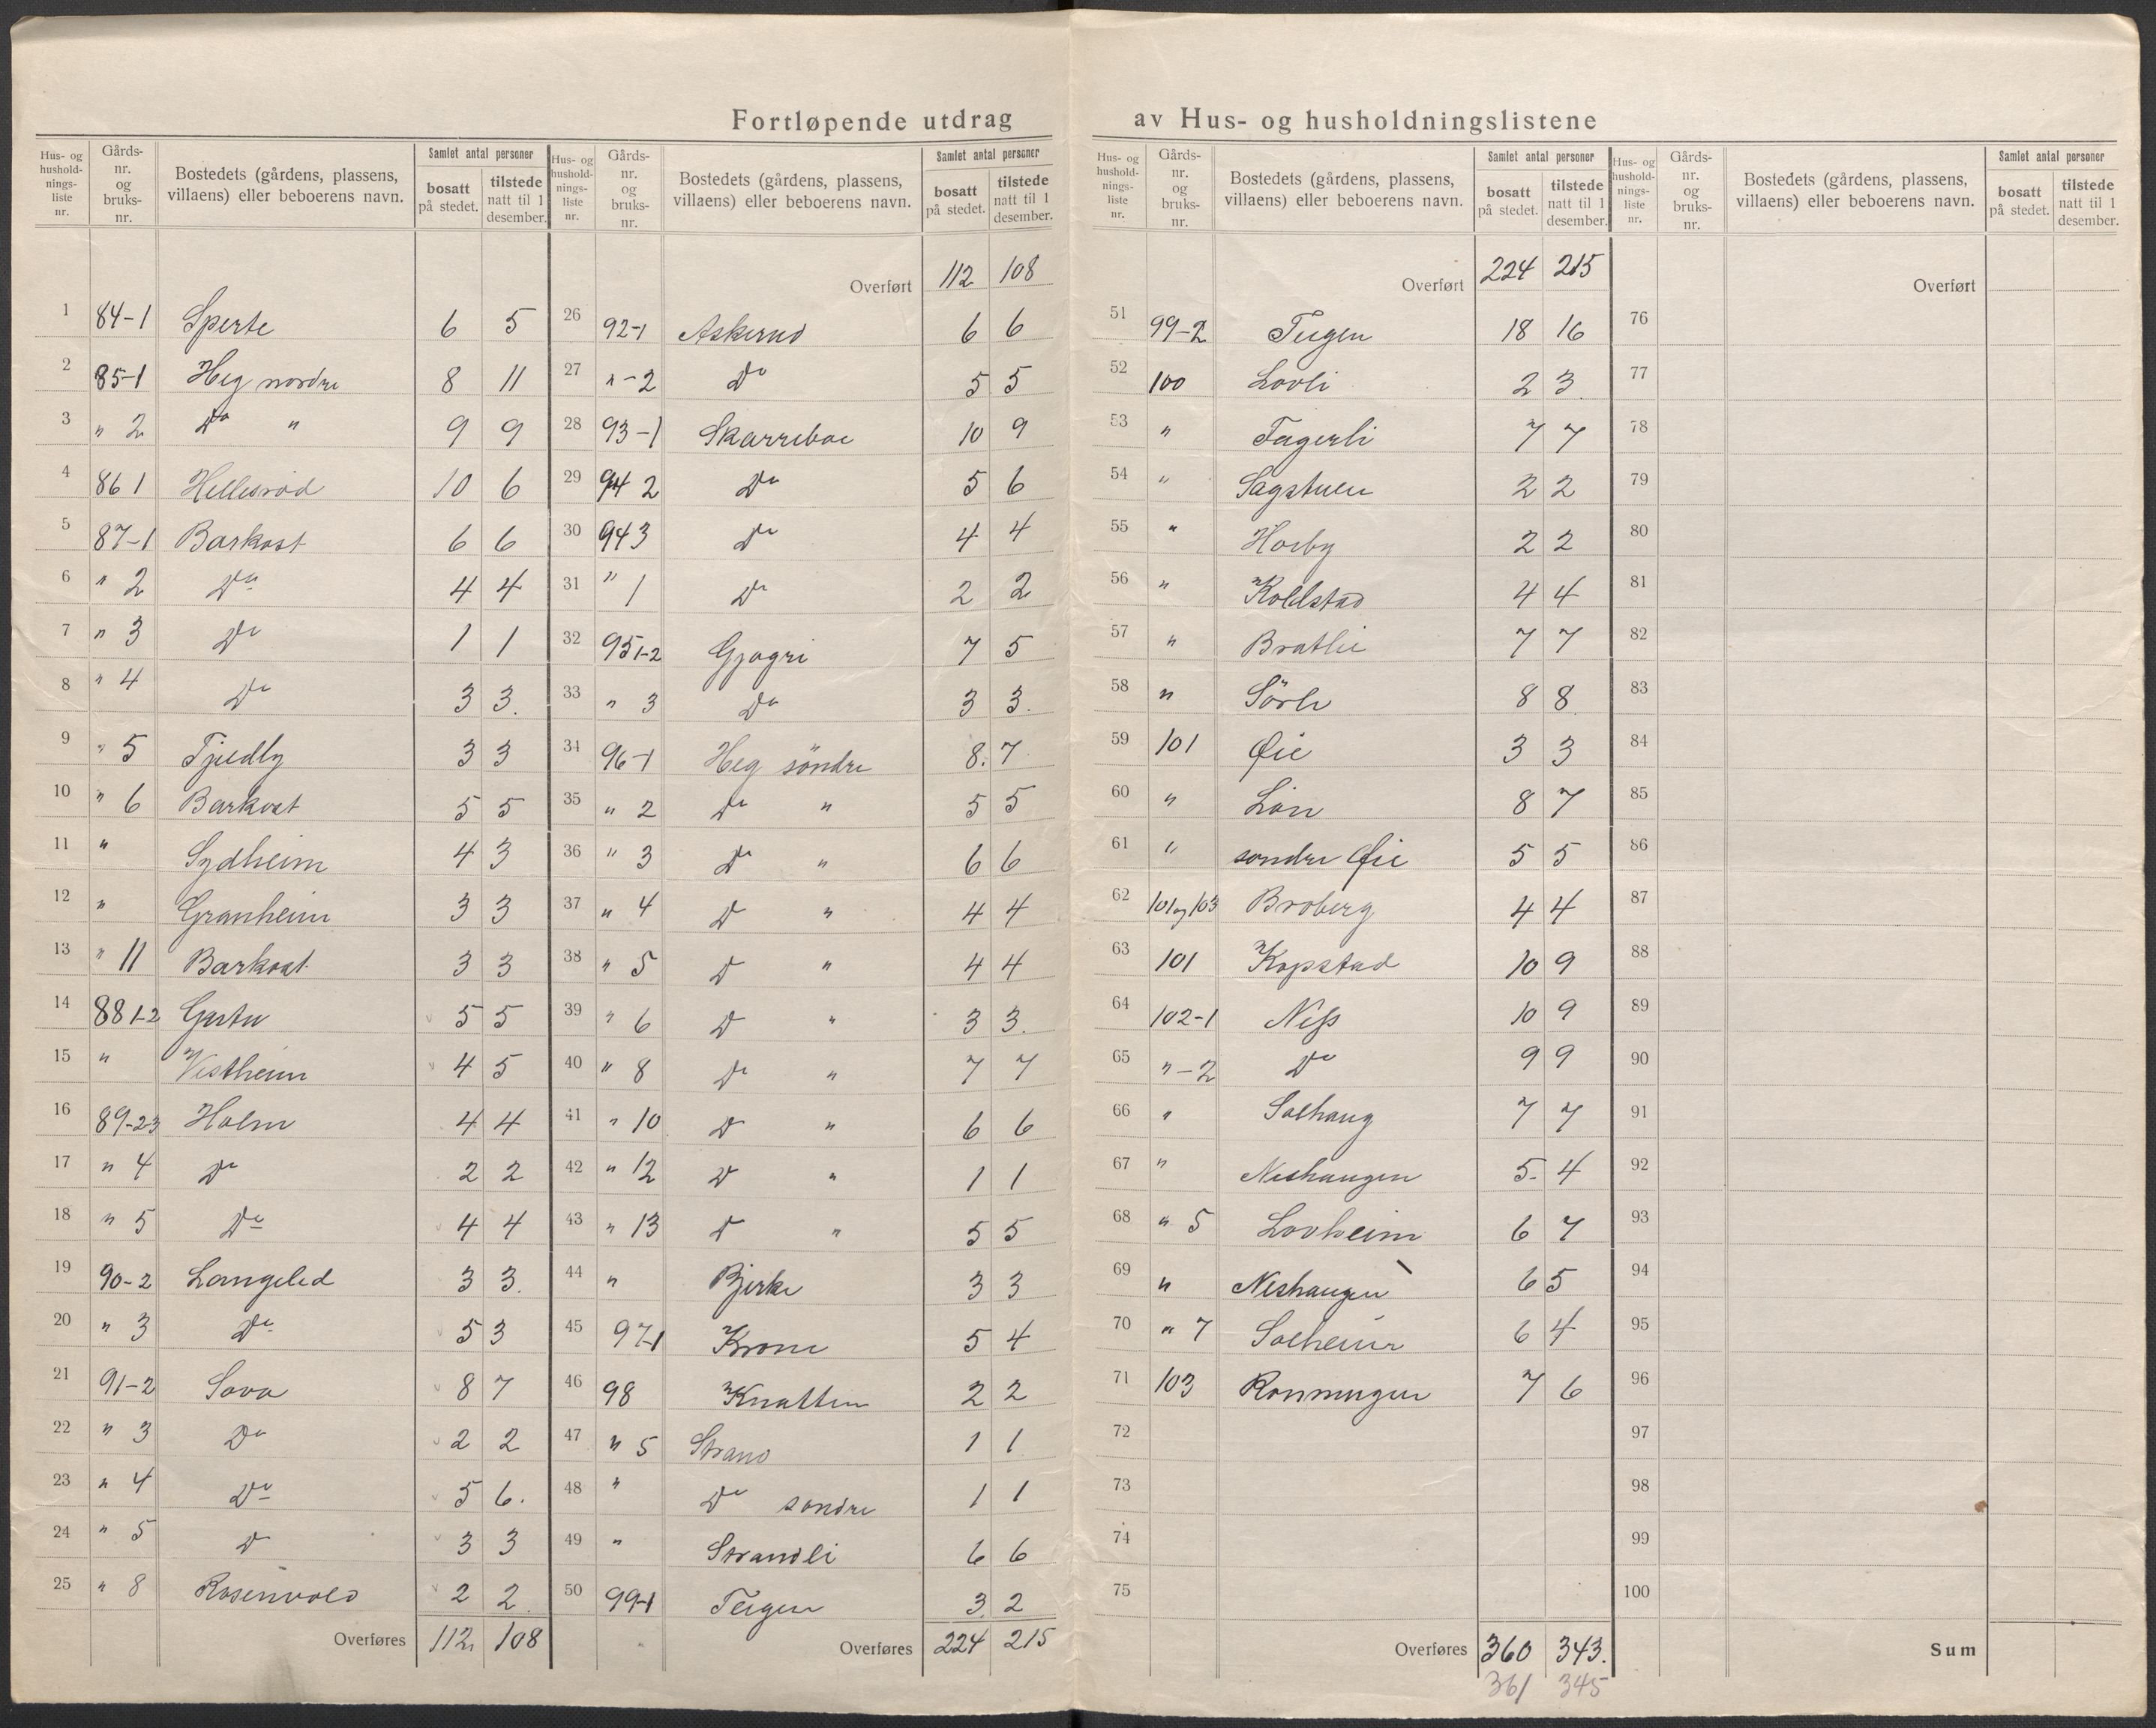 Fortløpende utdrag av Hus- og husholdningslistene
Hus- og husholdningsliste nr. | Gårdsnr. og bruksnr. | Bostedets (gårdens, plassens, villaens) eller beboerens navn. | Samlet antal personer | bosatt på stedet. | tilstede natt til 1 desember.
1 84-1 Sperte 6 5
2 85-1 Heg nordre 8 11
3 " 2 Do " 9 9
4 86 1 Hellesrød 10 6
5 87-1 Barkost 6 6
6 " 2 Do 4 4
7 " 3 Do 1 1
8 " 4 Do 3 3.
9 " 5 Tjedby 3 3
10 " 6 Barkost 5 5
11 " Sydheim 4 3
12 " Granheim 3 3
13 " 11 Barkost 3 3
14 88 1-2 5 5
15 " Vestheim 4 5
16 89-23 Holm 4 4
17 " 4 Do 2 2
18 " 5 Do 4 4
19 90-2 Langeled 3 3.
20 " 3 Do 5 3
21 91-2 Sova 8 7
22 " 3 Do 2 2
23 " 4 Do 5 6.
24 " 5 D 3 3
25 " 8 Rosenvold 2 2
Overføres 112 108
Hus- og husholdningsliste nr. | Gårdsnr. og bruksnr. | Bostedets (gårdens, plassens, villaens) eller beboerens navn. | Samlet antal personer | bosatt på stedet. | tilstede natt til 1 desember.
Overført 112 108
26 92-1 Askerud 6 6
27 " -2 Do 5 5
28 93-1 Skarreboe 10 9
29 94 2 Do 5 6
30 94 3 Do 4 4
31 " 1 Do 2 2
32 95 1-2 Gjøgri 7 5
33 " 3 Do 3 3.
34 96-1 Heg söndre 8. 7
35 " 2 Do " 5 5
36 " 3 Do " 6 6
37 " 4 D " 4 4
38 " 5 D " 4 4
39 " 6 D " 3 3.
40 " 8 Do " 7 7
41 " 10 D " 6 6
42 " 12 D " 1 1
43 " 13 D " 5 5
44 " Bjerke 3 3
45 97-1 Krone 5 4
46 98 Knatten 2 2
47 " 5 Strand 1 1
48 " Do sondre 1 1
49 " Strandli 6 6
50 99-1 Teigen 3 2
Overføres 224 215
Hus- og husholdningsliste nr. | Gårdsnr. og bruksnr. | Bostedets (gårdens, plassens, villaens) eller beboerens navn. | Samlet antal personer | bosatt på stedet. | tilstede natt til 1 desember.
Overført 224 215
51 99-2 Teigen 18 16
52 100 Lovli 2 3.
53 " Fagerli 7 7
54 " Sagstuen 2 2
55 " Hoeby 2 2
56 " Koldstad 4 4
57 " Bratlie 7 7
58 " Sörli 8 8
59 101 Øie 3 3
60 " Lön 8 7
61 " sondre Øie 5 5
62 101 og 103 Broberg 4 4
63 101 Kopstad 10 9
64 102-1 Ness 10 9
65 " -2 Do 9 9
66 " Solhaug 7 7
67 " Neshaugen 5. 4
68 " 5 Lovheim 6 7
69 " Neshaugen 6 5
70 " 7 Solheim 6 4
71 103 Ronningen 7 6
72
73
74
75
Overføres 360 343.
361 345
Hus- og husholdningsliste nr. | Gårdsnr. og bruksnr. | Bostedets (gårdens, plassens, villaens) eller beboerens navn. | Samlet antal personer | bosatt på stedet. | tilstede natt til 1 desember.
Overført
76
77
78
79
80
81
82
83
84
85
86
87
88
89
90
91
92
93
94
95
96
97
98
99
100
Sum